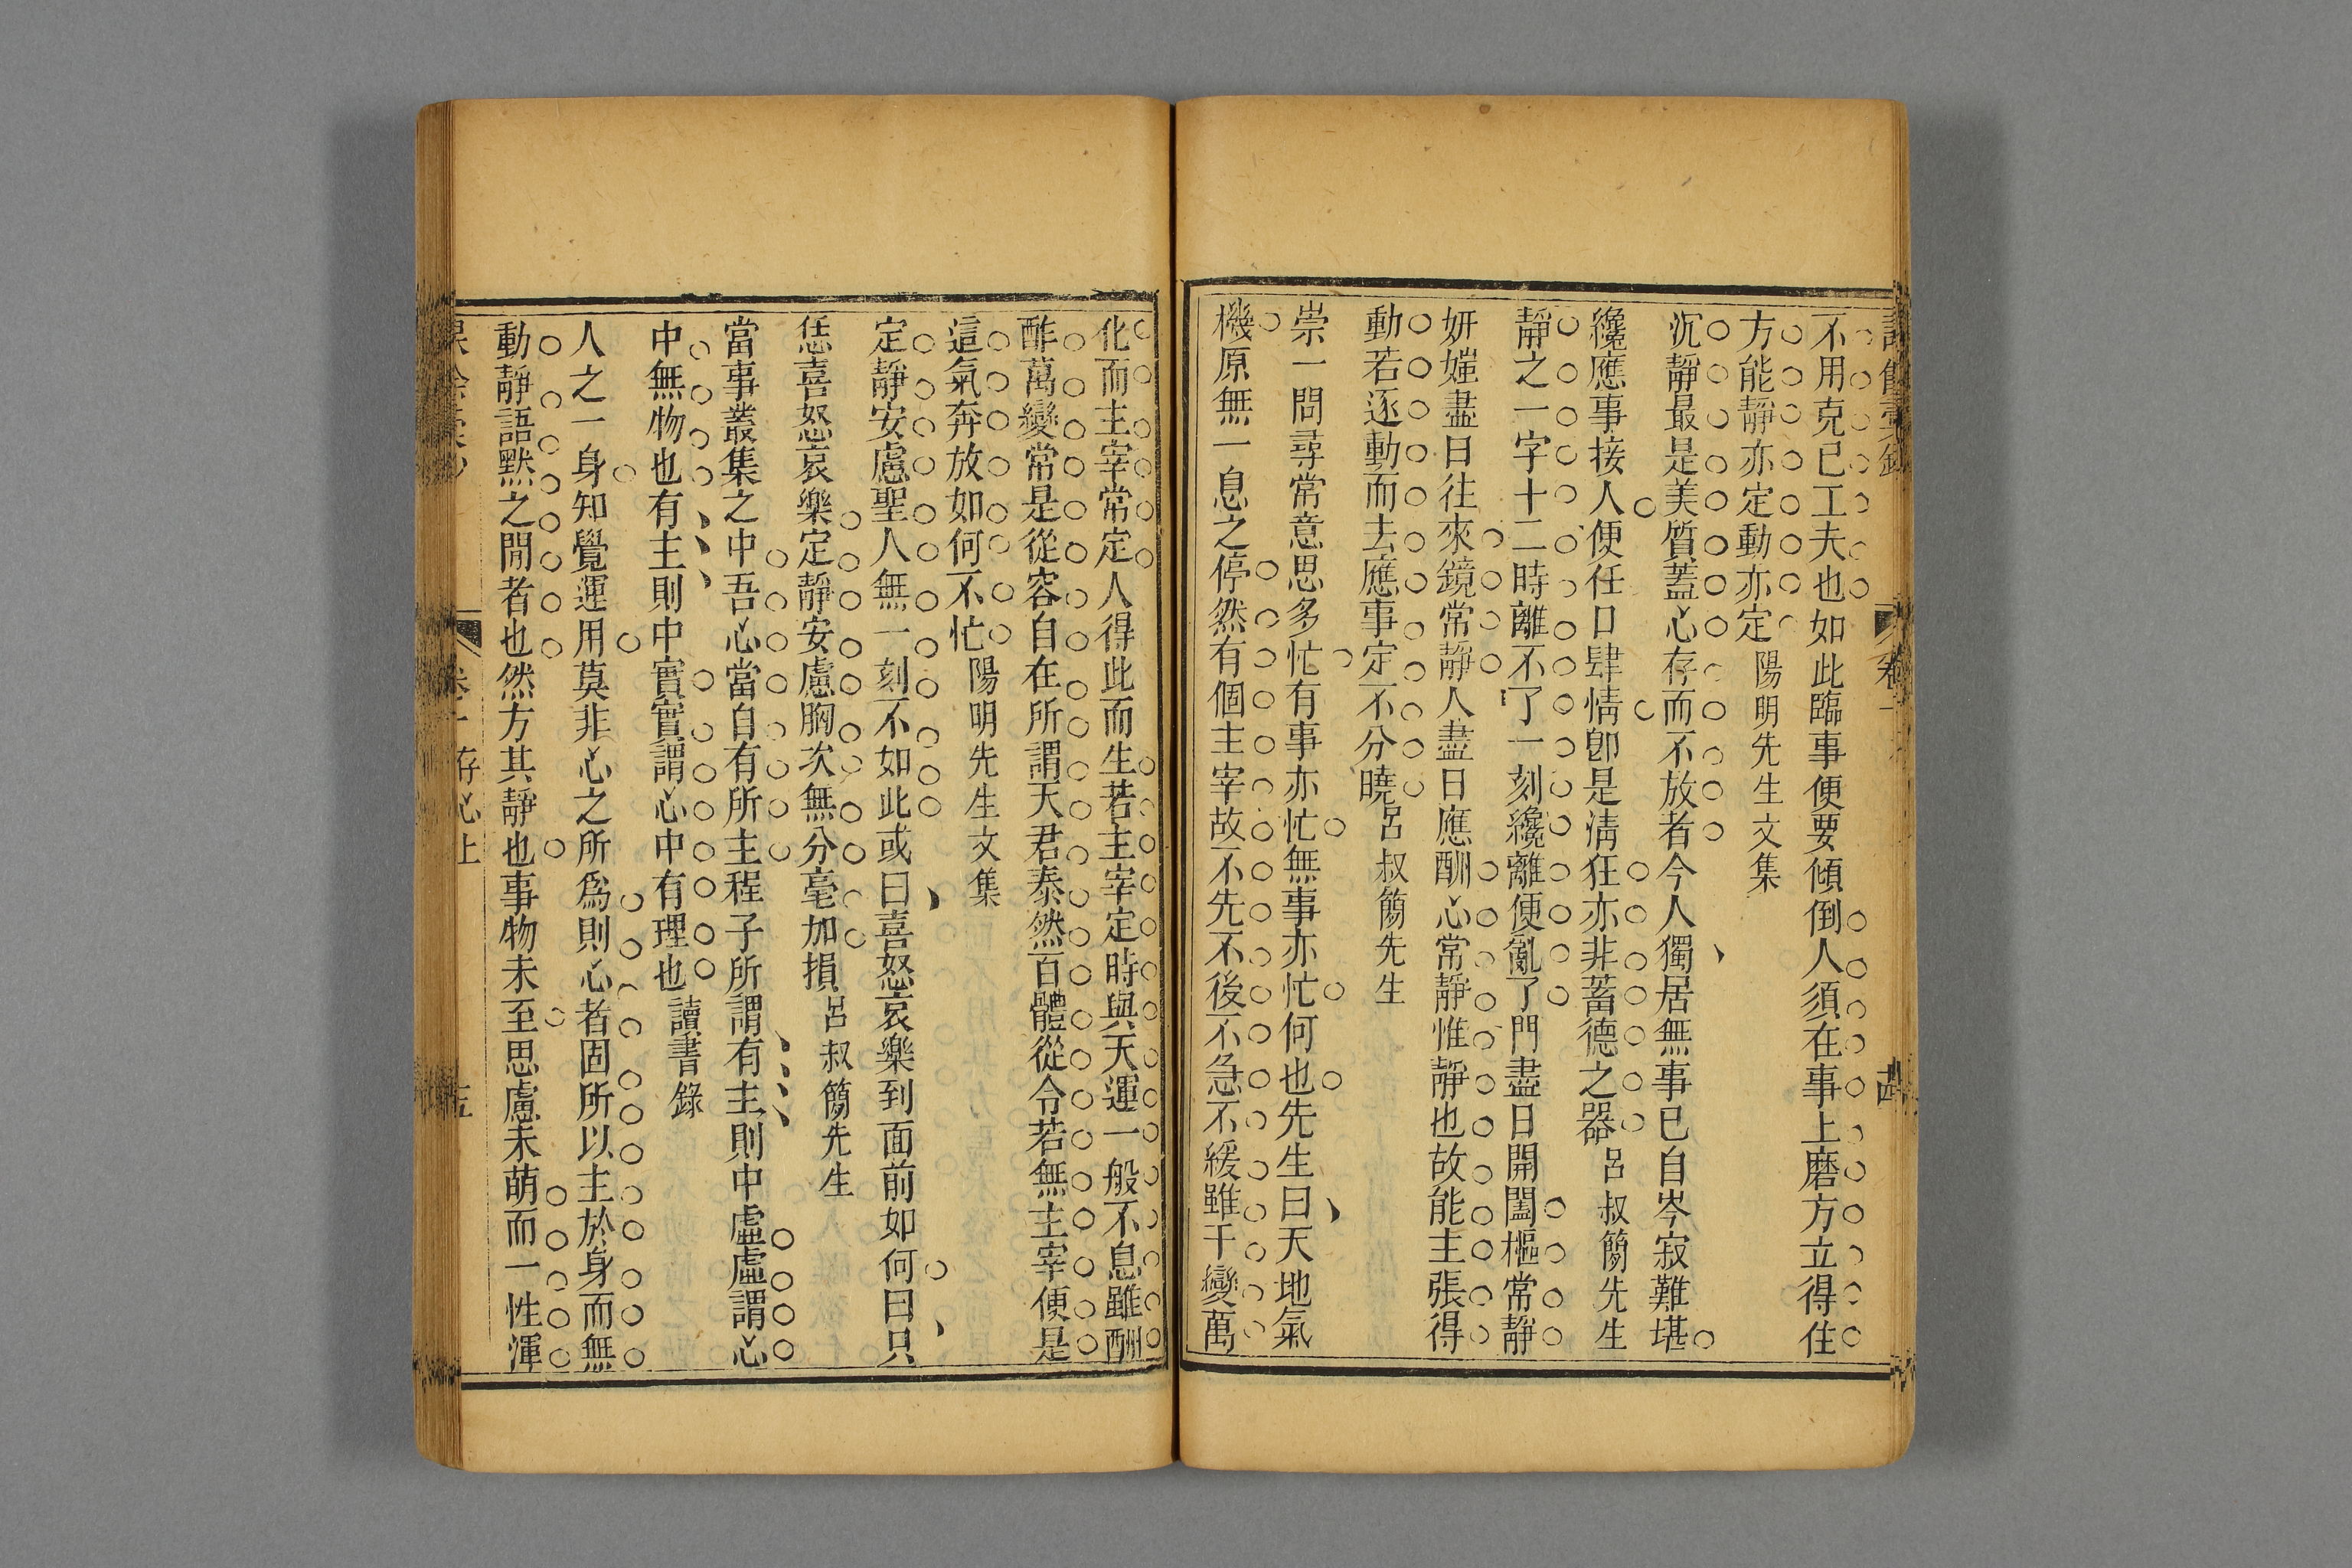 不用克已工夫也如此臨事便要傾倒人須在事上磨方立得住
方能靜亦定動亦定 陽明先生文集
沉靜最是美質蓋心存而不放者今人獨居無事已自岑寂難堪
纔應事接人便任口肆情卽是淸狂亦非蓄德之器 呂叔簡先生
靜之一字十二時離不了一刻纔離便亂了門盡日開闔樞常靜
妍媸盡日往來鏡常靜人盡日應酬心常靜惟靜也故能主張得
動若逐動而去應事定不分曉 呂叔簡先生
崇一問尋常意思多忙有事亦忙無事亦忙何也先生曰天地氣
機原無一息之停然有個主宰故不先不後不急不緩雖千變萬
卷一
化而主宰常定人得此而生若主宰定時與天運一般不息雖酬
酢萬變常是從容自在所謂天君泰然百體從令若無主宰便是
這氣奔放如何不忙 陽明先生文集
定靜安慮聖人無一刻不如此或曰喜怒哀樂到面前如何曰只
恁喜怒哀樂定靜安慮胸次無分毫加損 呂叔簡先生
當事叢集之中吾心當自有所主程子所謂有主則中虛虛謂心
中無物也有主則中實實謂心中有理也 讀書錄
人之一身知覺運用莫非心之所爲則心者固所以主於身而無
動靜語默之閒者也然方其靜也事物未至思慮未萌而一性渾
卷一 存心上